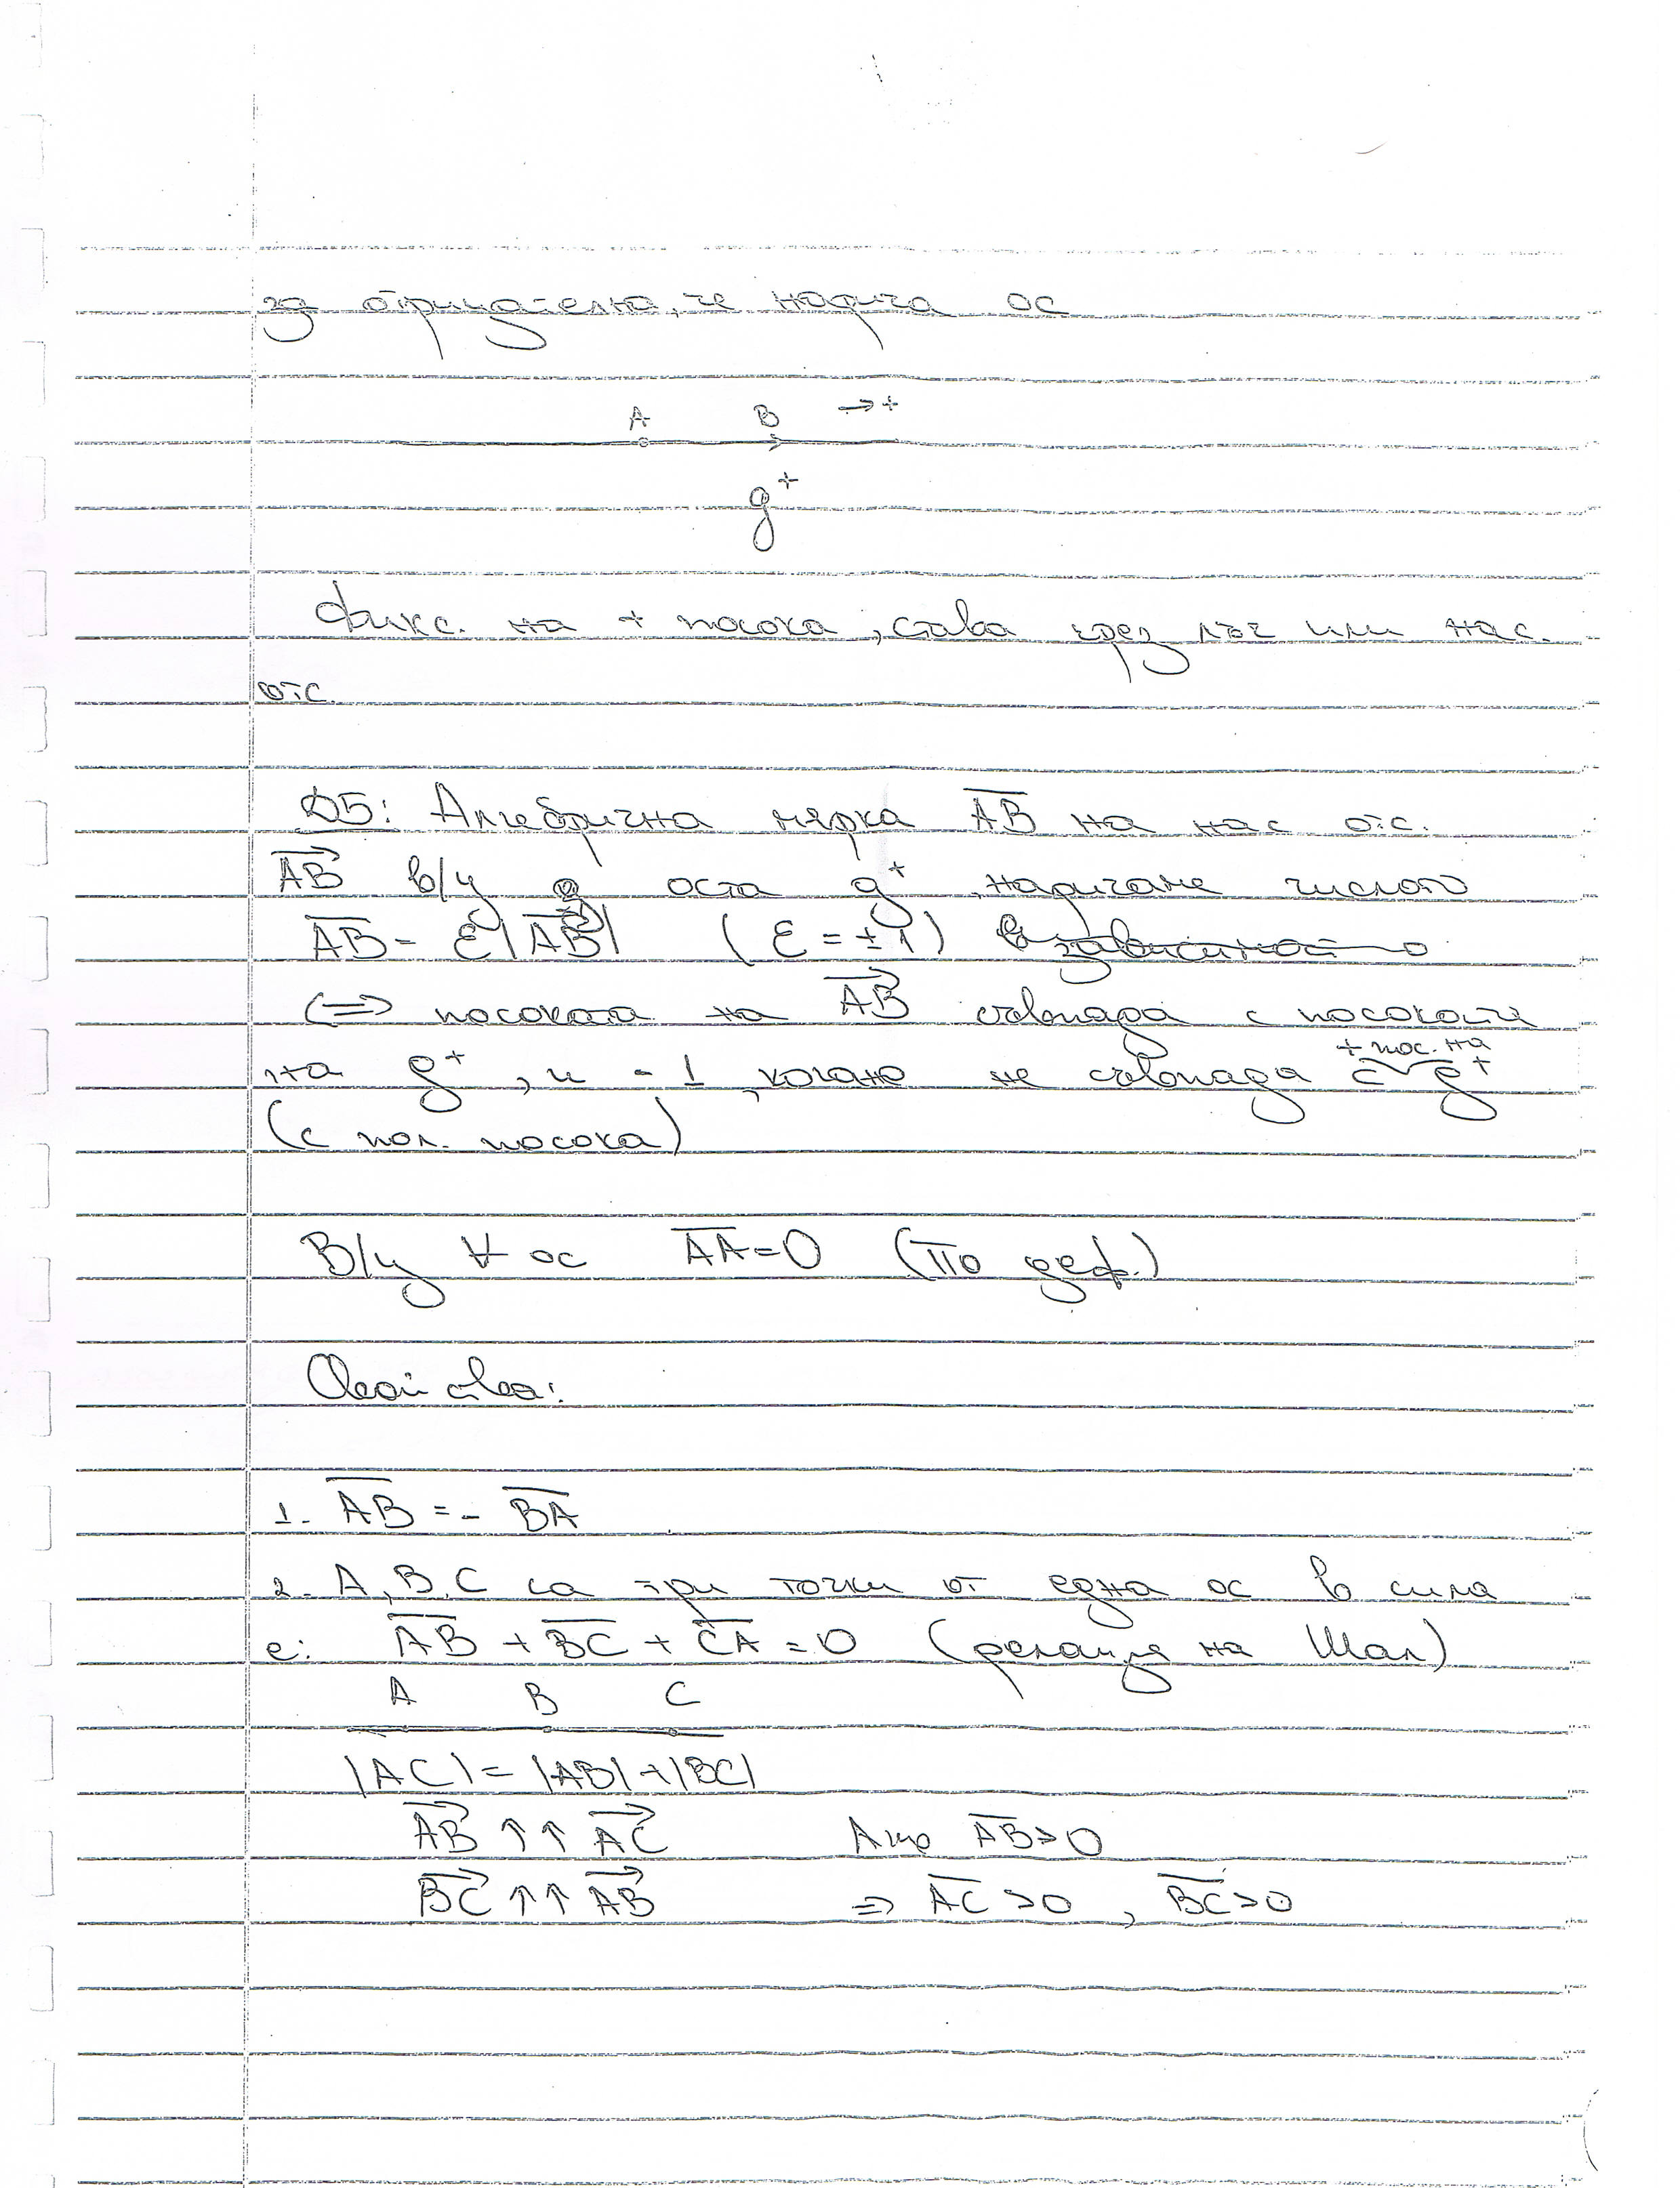 за отрицателна, се нарича ос
A B →+
g⁺
Фикс. на + посока, става чрез лъч или нас.
отс.
D5: Алгебрична мярка A̅B̅ на нас отс.
AB→ в/у оста g⁺, наричаме числото
A̅B̅ = ε|AB→| (ε = ±1) в зависимост
(=> посоката на AB→ съвпада с посоката
на g⁺, и -1, когато не съвпада с g⁺
+ пос. на
(с пол. посока)
В/у ∀ ос A̅A̅ = 0 (По деф.)
Свойства:
1. A̅B̅ = - B̅A̅
2. A, B, C са три точки от една ос в сила
е: A̅B̅ + B̅C̅ + C̅A̅ = 0 (релация на Шал)
A B C
|AC| = |AB| + |BC|
AB→ ↑↑ AC→ Ако A̅B̅ > 0
BC→ ↑↑ AB→ => A̅C̅ > 0, B̅C̅ > 0